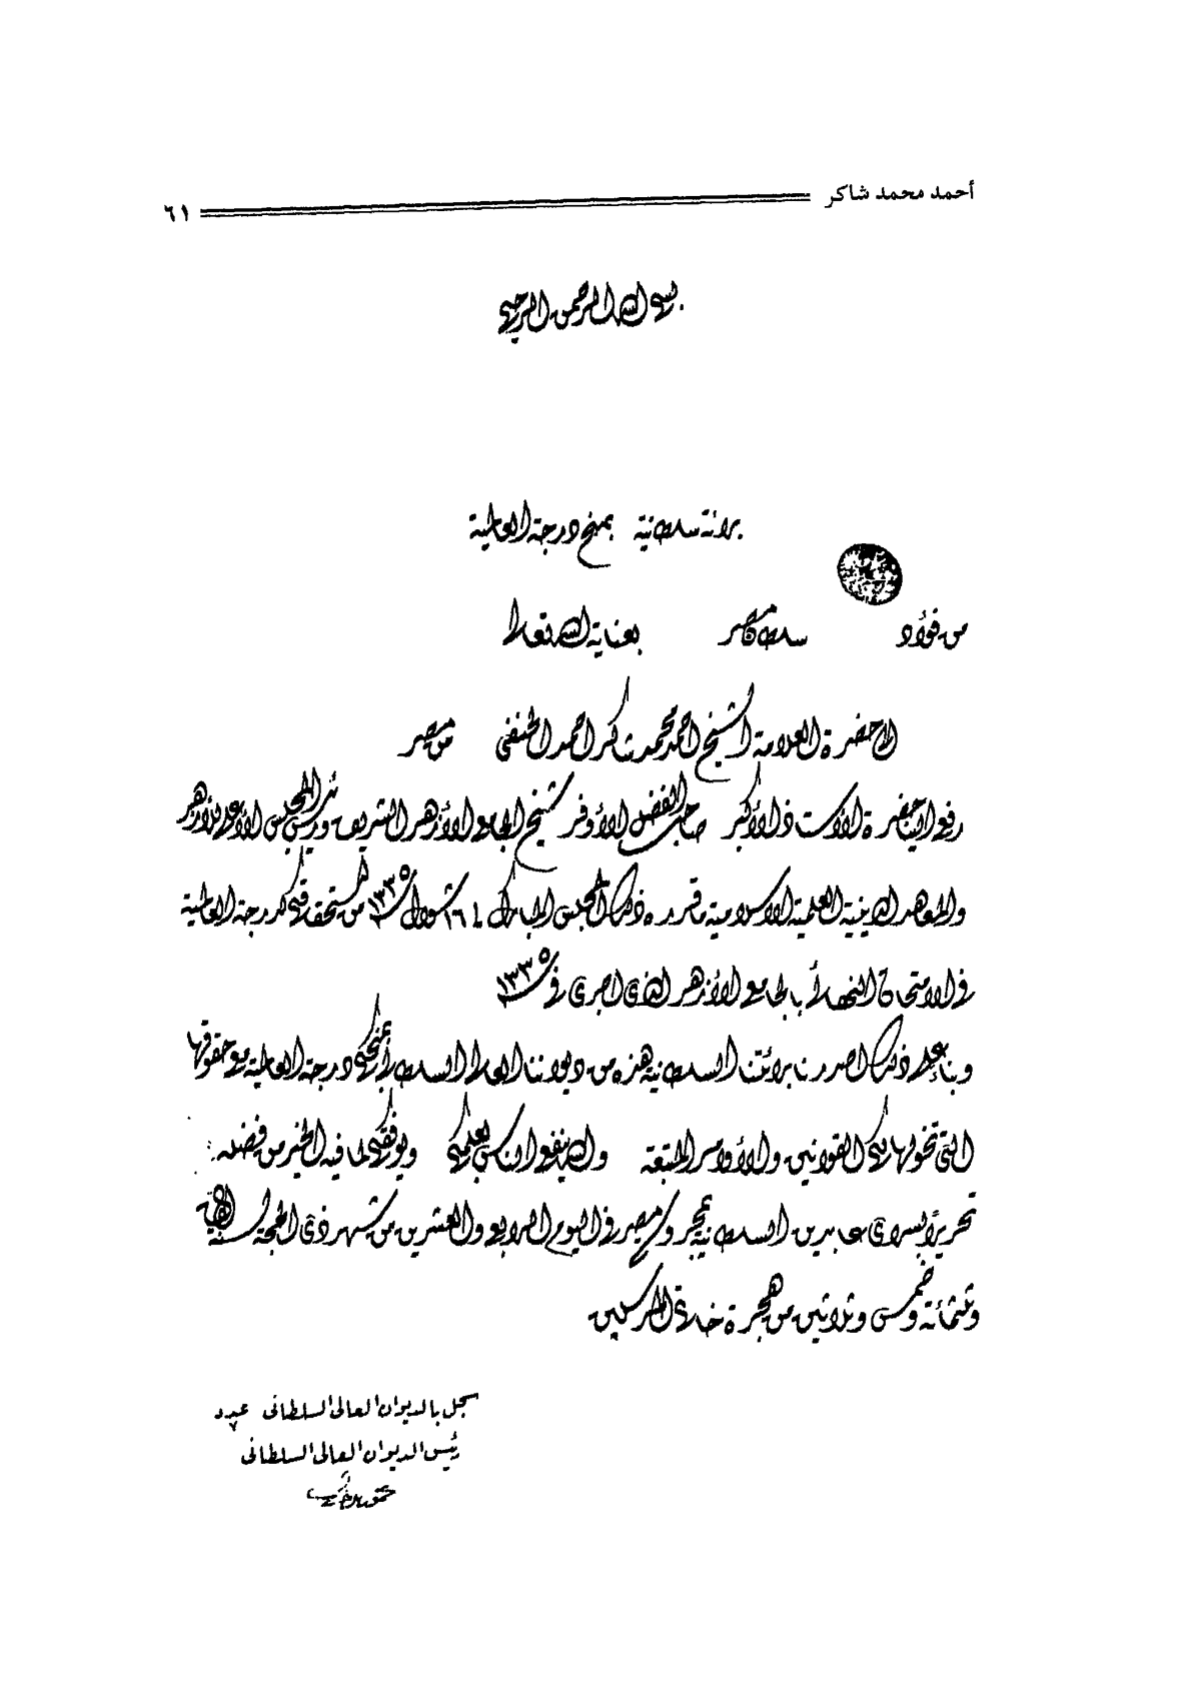 أحمد محمد شاكر ٦١
بسم الله الرحمن الرحيم
براءة سلطانية بمنح درجة العالمية
من فؤاد سلطان مصر بعناية الله تعالى
إلى حضرة العلامة الشيخ احمد محمد شاكر احمد الحنفي من مصر
رفع الينا حضرة الأستاذ الأكبر صاحب الفضل الأوفر شيخ الجامع الأزهر الشريف ورئيس المجلس الأعلى للأزهر
والمعاهد الدينية العلمية الاسلامية ما قرره ذلك المجلس المبارك في ١٦ شوال سنة ١٣٣٥ من استحقاقكم درجة العالمية
في الامتحان النهائي بالجامع الأزهر الذي اجري في سنة ١٣٣٥
وبناء على ذلك اصدرنا براءتنا السلطانية هذه من ديواننا العالي السلطاني بمنحكم درجة العالمية مع حقوقها
التي تخولها لكم القوانين والأوامر المتبعة والله ينفع الناس بعلمكم ويوفقكم لما فيه الخير من فضله
تحريرًا بسراي عابدين السلطانية بمحروسة مصر في اليوم الرابع والعشرين من شهر ذي الحجة لسنة الف
وثلثمائة وخمس وثلاثين من هجرة خاتم المرسلين
سجل بالديوان العالى السلطانى عدد ٧
رئيس الديوان العالى السلطانى